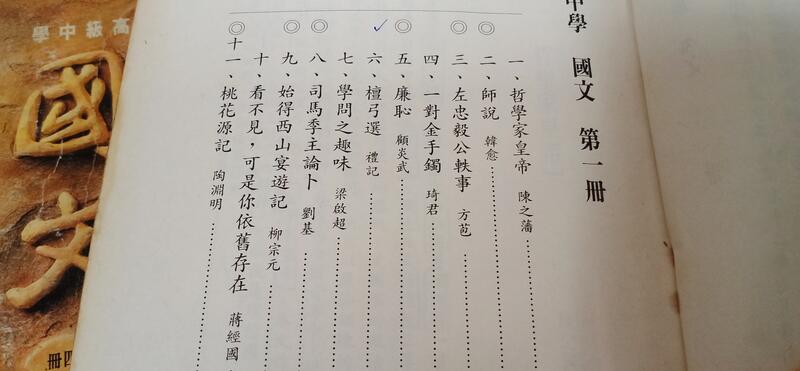 中學 國文 第一冊
一、哲學家皇帝 陳之藩
◎二、師說 韓愈
◎三、左忠毅公軼事 方苞
四、一對金手鐲 琦君
◎五、廉恥 顧炎武
六、檀弓選 禮記
七、學問之趣味 梁啟超
◎八、司馬季主論卜 劉基
◎九、始得西山宴遊記 柳宗元
十、看不見，可是你依舊存在 蔣經國
◎十一、桃花源記 陶淵明
高級中學
國文
四冊